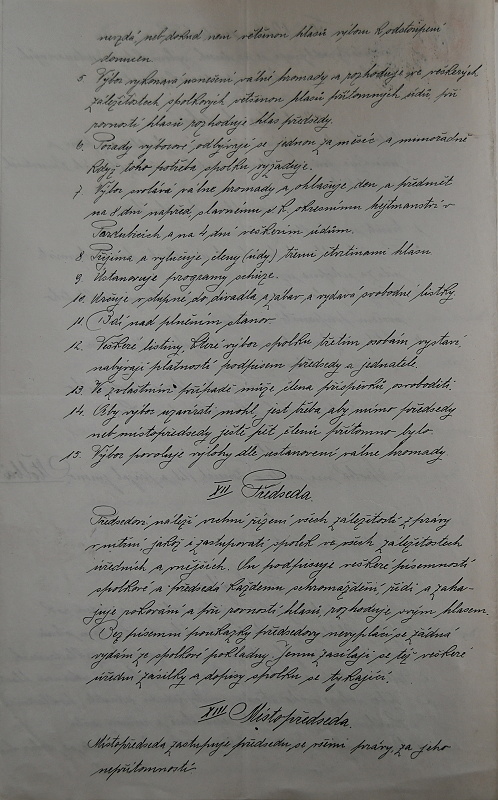 nevzdá neb dokud není většinou hlasů výboru k odstoupení
donucen.
5. Výbor vykonává usnešení valné hromady a rozhoduje ve veškerých
záležitostech spolkových většinou hlasů přítomných údů, při
rovnosti hlasů rozhoduje hlas předsedy.
6. Porady výborové odbývají se jednou za měsíc a mimořádně
když toho potřeba spolku vyžaduje.
7. Výbor svolává valné hromady a ohlašuje den a předmět
na 8 dní napřed slavnému c. k. okresnímu hejtmanství v
Pardubicích a na 4 dní veškerým údům.
8. Přijímá a vylučuje členy (údy) třemi čtvrtinami hlasů.
9. Ustanovuje programy schůze.
10. Určuje vstupné do divadla a zábav a vydává svobodné lístky.
11. Bdí nad plněním stanov.
12. Veškeré listiny, které výbor spolku třetím osobám vystaví,
nabývají platnosti podpisem předsedy a jednatele.
13. Ve zvláštním případě může člena příspěvků osvoboditi.
14. Aby výbor uzavírati mohl, jest třeba aby mimo předsedy
neb místopředsedy ještě pět členů přítomno bylo.
15. Výbor povoluje výlohy dle ustanovení valné hromady
XII Předseda.
Předsedovi náleží vrchní řízení všech záležitostí správy
vnitřní jakož i zastupovati spolek ve všech záležitostech
úředních a vnějších. On podpisuje veškeré písemnosti
spolkové a předsedá každému shromáždění, řídí a zaha-
juje rokování a při rovnosti hlasů, rozhoduje svým hlasem.
Bez písemní poukázky předsedovy nevyplácí se žádná
vydání ze spolkové pokladny. Jemu zasílají se též veškeré
úřední zásilky a dopisy spolku se týkající.
XIII Místopředseda.
Místopředseda zastupuje předsedu, se všemi právy, za jeho
nepřítomnosti.